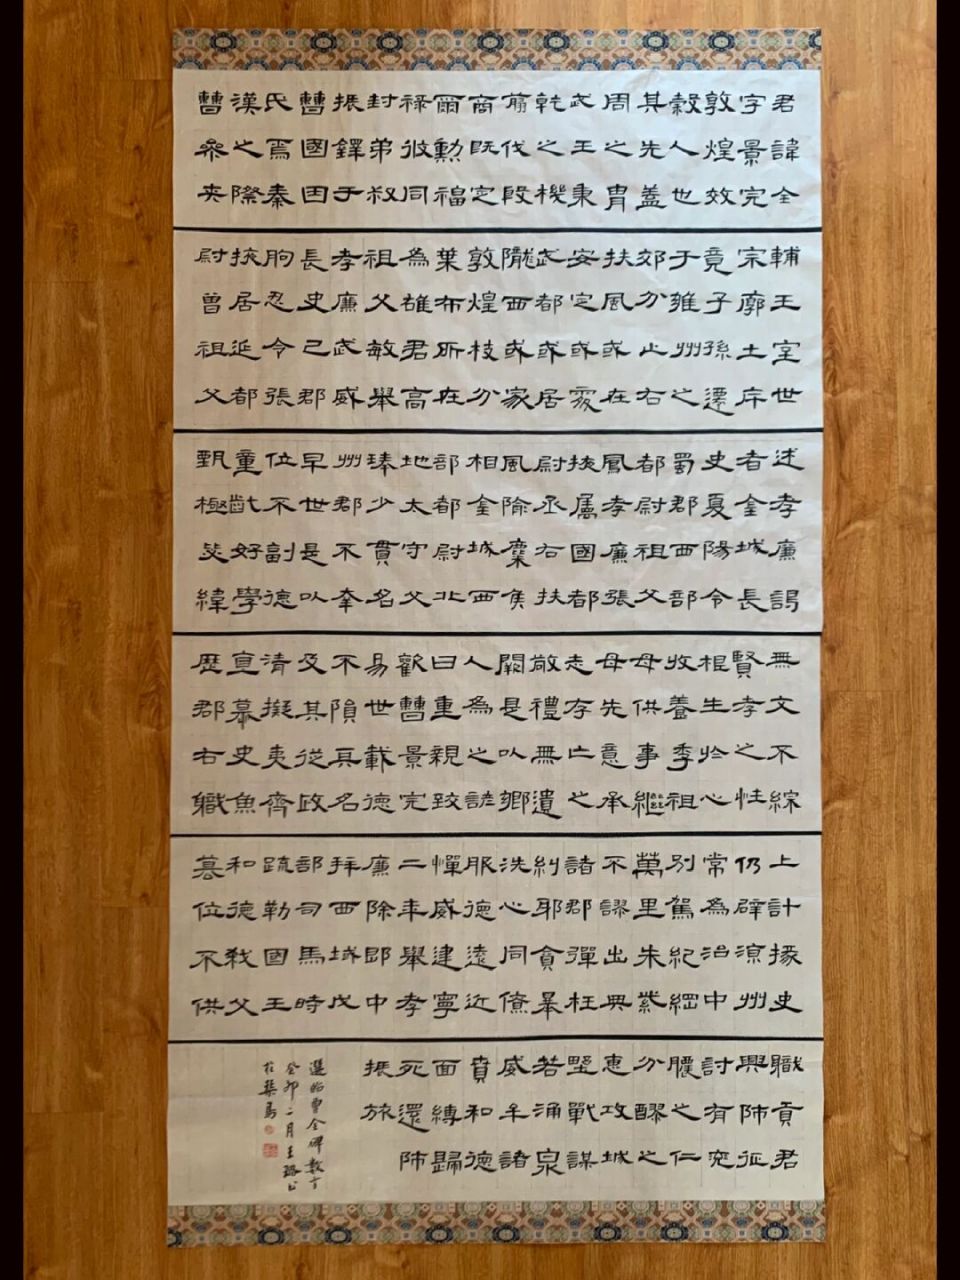 君諱全
字景完
敦煌效
穀人也
其先蓋
周之胄
武王秉
乾之機
翦伐殷
商既定
爾勳福
祿攸同
封弟叔
振鐸于
曹國因
氏焉秦
漢之際
曹參夾
輔王室世
宗廓土斥
竟子孫遷
于雍州之
郊分止右
扶風或在
安定或處
武都或居
隴西或家
敦煌枝分
葉布所在
為雄君高
祖父敏舉
孝廉武威
長史巳郡
朐忍令張
挾居延都
尉曾祖父
述孝廉謁
者金城長
史夏陽令
蜀郡西部
都尉祖父
鳳孝廉張
挾屬國都
尉丞右扶
風隃麋侯
相金城西
部都尉北
地太守父
瑧少貫名
州郡不幸
早世是以
位不副德
童齔好學
甄極毖緯
無文不綜
賢孝之性
根生於心
收養季祖
母供事繼
母先意承
志存亡之
敬禮無遺
闕是以鄉
人為之諺
曰重親致
歡曹景完
易世載德
不隕其名
及其從政
清擬夷齊
宣慕史魚
歷郡右職
上計掾史
仍辟涼州
常為治中
別駕紀綱
萬里朱紫
不謬出典
諸郡彈枉
糾邪貪暴
洗心同僚
服德遠近
憚威建寧
二年舉孝
廉除郎中
拜西域戊
部司馬時
疏勒國王
和德弒父
墓位不供
職貢君
興師征
討有兗
膿之仁
分醪之
惠攻城
堅戰謀
若涌泉
威牟諸
賁和德
面縛歸
死還師
振旅
選臨曹全碑數
癸卯二月王